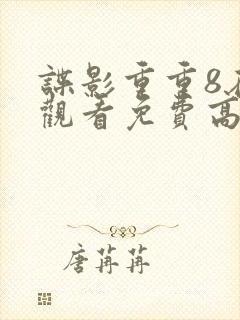 諜影重重8
觀看免費高
唐苒苒